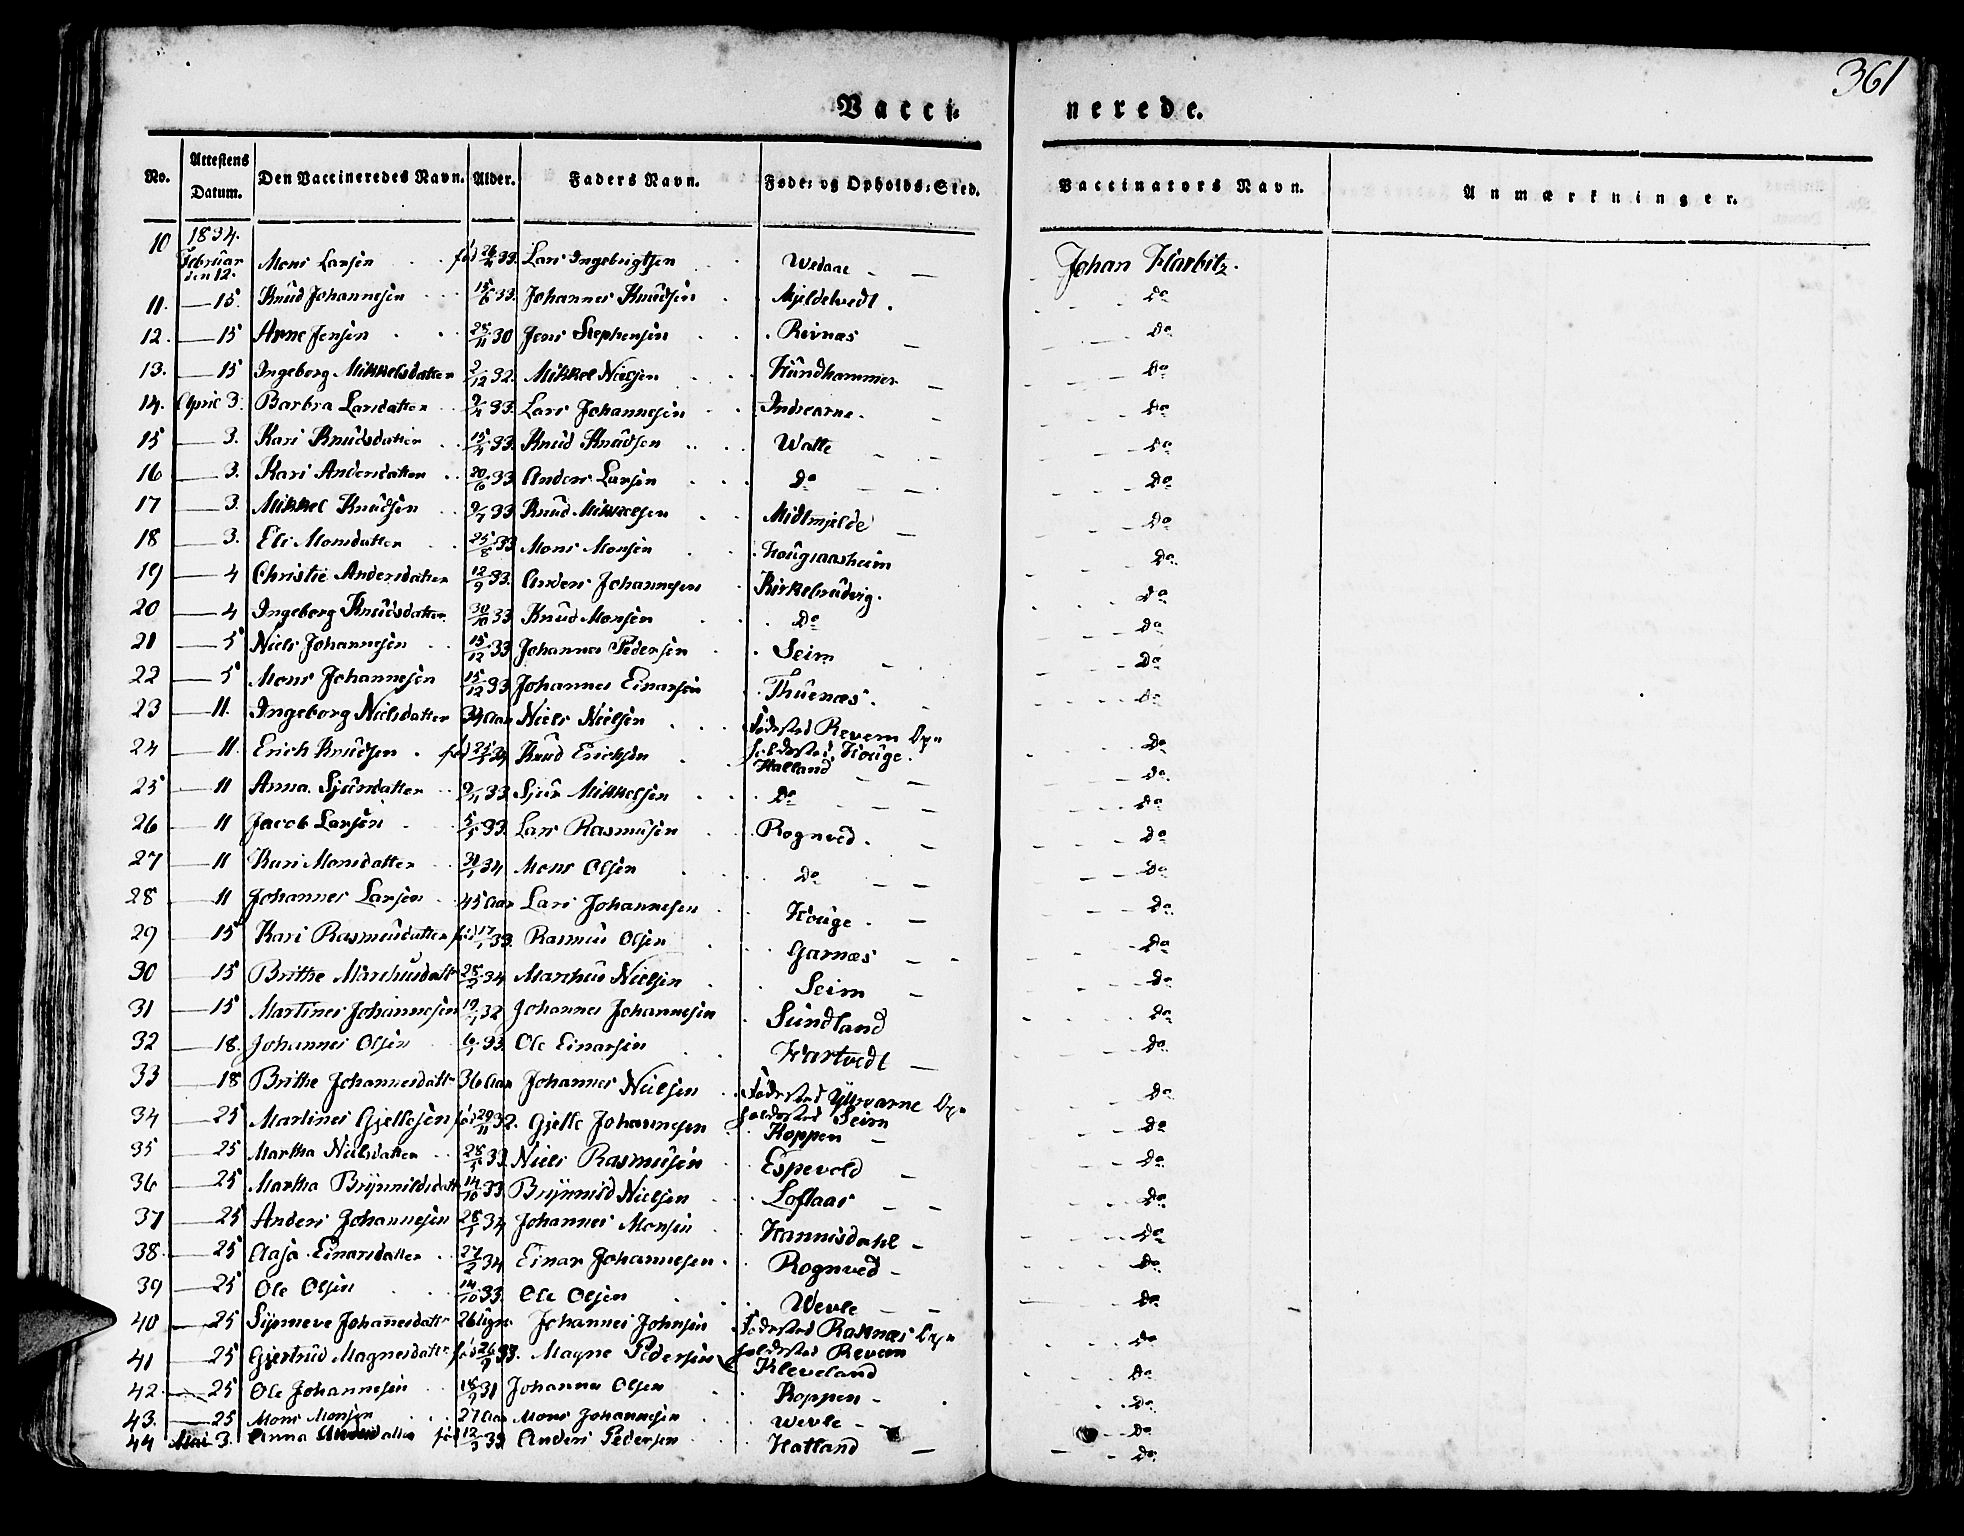 361
Vacci- nerede.
No. Attestens Datum. Den Vaccineredes Navn. Alder. Faders Navn. Føde- og Opholds-Sted. Vaccinators Navn. Anmærkninger.
1834.
10 Februar den 12. Mons Larsen fød 33. Lars Ingebrigtsen Wedaae Johan Harbitz.
11. — 15. Knud Johannesen 15/6 33. Johannes Knudsen Mjeldetvedt. Do
12. — 15 Arne Jensen 25/11 30 Jens Stephensen Revnæs Do
13. — 15 Ingeborg Mikkelsdatter 2/12 32. Mikkel Nielsen Hundhammer Do
14. April 3. Barbra Larsdatter 33. Lars Johannesen Indrearne. Do
15 — 3. Kari Knudsdatter 33. Knud Knudsen Watle Do
16 — 3. Kari Andersdatter 20/6 33 Anders Larsen Do Do
17 — 3. Mikkel Knudsen 9/7 33 Knud Mikkelsen Midtmjelde Do
18 — 3. Eli Monsdatter 25/8 33 Mons Monsen Do
19 — 4 Christie Andersdatter 12/9 33. Anders Johannesen Kirkebirdvig. Do
20 — 4 Ingeborg Knudsdatter 30/10 33 Knud Monsen Do Do
21 — 5 Niels Johannesen 15/12 33 Johannes Pedersen Seim Do
22 — 5 Mons Johannesen 15/12 33 Johannes Einarsen Thuenæs. Do
23 — 11. Ingeborg Nielsdatter 34 Aar Niels Nielsen Fødested Revem Op- Do
24 — 11. Erich Knudsen fød 34 Knud Ericksen holdested Houge. Hatland Do
25 — 11 Anna Sjursdatter 33. Sjur Mikkelsen Do Do
26 — 11 Jacob Larsen 33. Lars Rasmusen Rognved. Do
27 — 11 Kari Monsdatter 34 Mons Olsen Do Do
28 — 11 Johannes Larsen 45 Aar Lars Johannesen Houge. Do
29 — 15 Kari Rasmusdatter fød 33. Rasmus Olsen Garnæs Do
30 — 15 Brithe Marchusdattr 25/2 34 Marchus Nielsen Seim Do
31 — 15 Martines Johannesen 32 Johannes Johannesen Sundland Do
32 — 18. Johannes Olsen 33. Ole Einarsen Hartvedt Do
33 — 18 Brithe Johannesdattr 36 Aar Johannes Nielsen Fødested Ytrearne Op- Do
34 — 25 Martines Gjellesen fød 29/11 32. Gjelle Johannesen holdested Seim Koppen Do
35 — 25 Martha Nielsdatter 33 Niels Rasmusen Espevold Do
36 — 25 Martha Brynnildsdatt 14/10 33 Brynnild Nielsen Loftaas Do
37 — 25 Anders Johannesen 34 Johannes Monsen Hannisdahl Do
38. — 25 Aasa Einarsdatter 27/2 34 Einar Johannesen Rognved Do
39 — 25 Ole Olsen 14/10 33. Ole Olsen Wevle Do
40 — 25 Synneve Johannesdattr 26 Johannes Johnsen Fødested Raknæs Op- Do
41 — 25 Gjertrud Magnesdatter fød 33. Magne Pedersen holdested Revem Kleveland Do
42. — 25 Ole Johannesen 31 Johannes Olsen Koppen Do
43. — 25 Mons Monsen 27 Aar Mons Johannesen Wevle Do
44 Mai 3. Anna datter fød 33 Anders Pedersen Hatland Do